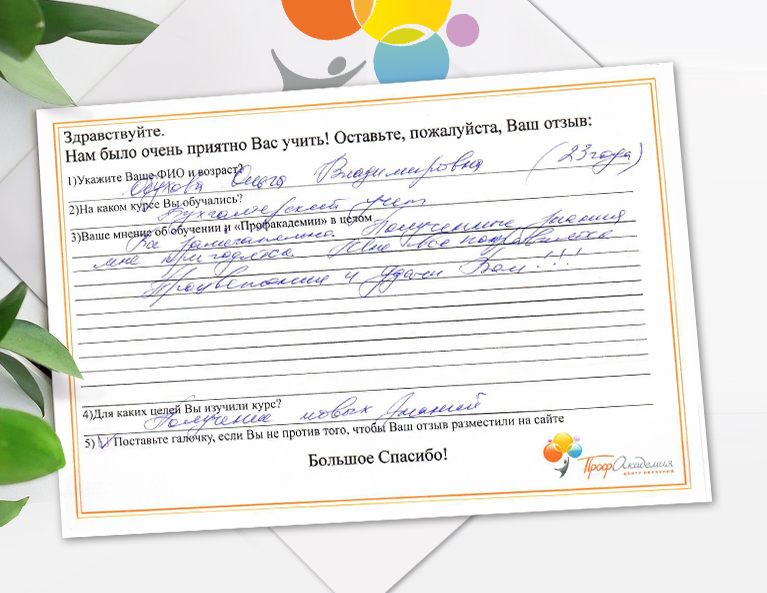 Здравствуйте.
Нам было очень приятно Вас учить! Оставьте, пожалуйста, Ваш отзыв:
1)Укажите Ваше ФИО и возраст?
Ольга Владимировна (23 года)
2)На каком курсе Вы обучались?
Бухгалтерский учет
3)Ваше мнение об обучении и «Профакадемии» в целом
Все замечательно. Полученные знания
мне пригодятся. Мне все понравилось.
Процветания и удачи Вам!!!
4)Для каких целей Вы изучили курс?
Получение новых знаний
5) Поставьте галочку, если Вы не против того, чтобы Ваш отзыв разместили на сайте
Большое Спасибо!
ПрофАкадемия